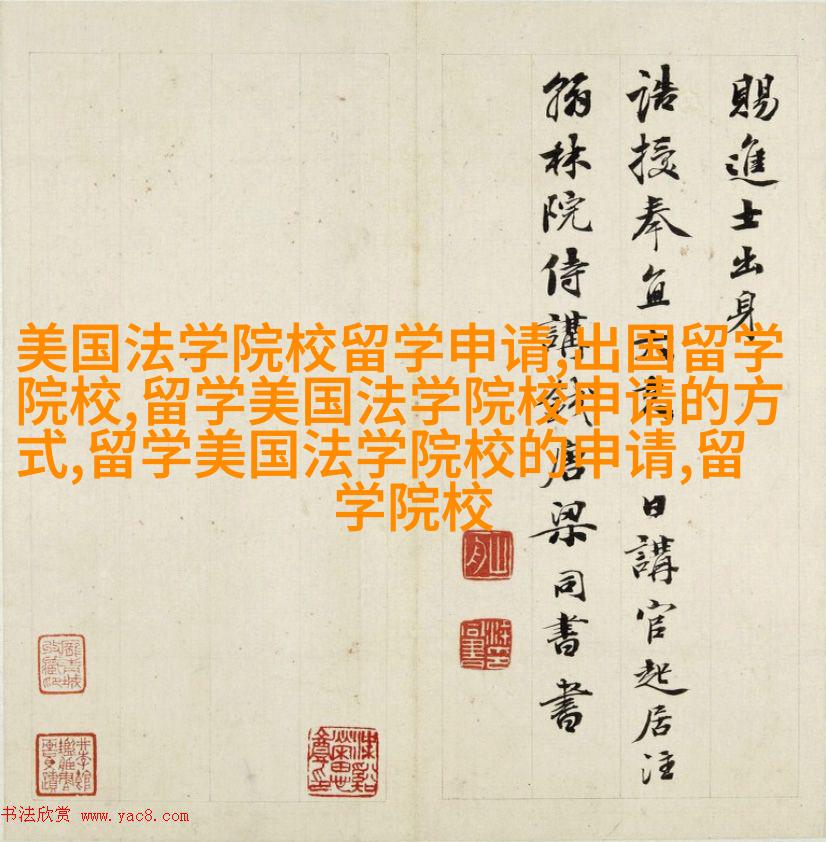 賜進士出身
誥授奉直大夫 日講官起居注
翰林院侍講錢唐梁同書書
美国法学院校留学申请,出国留学
院校,留学美国法学院校申请的方
式,留学美国法学院校的申请,留
学院校
书法欣赏 www.yac8.com